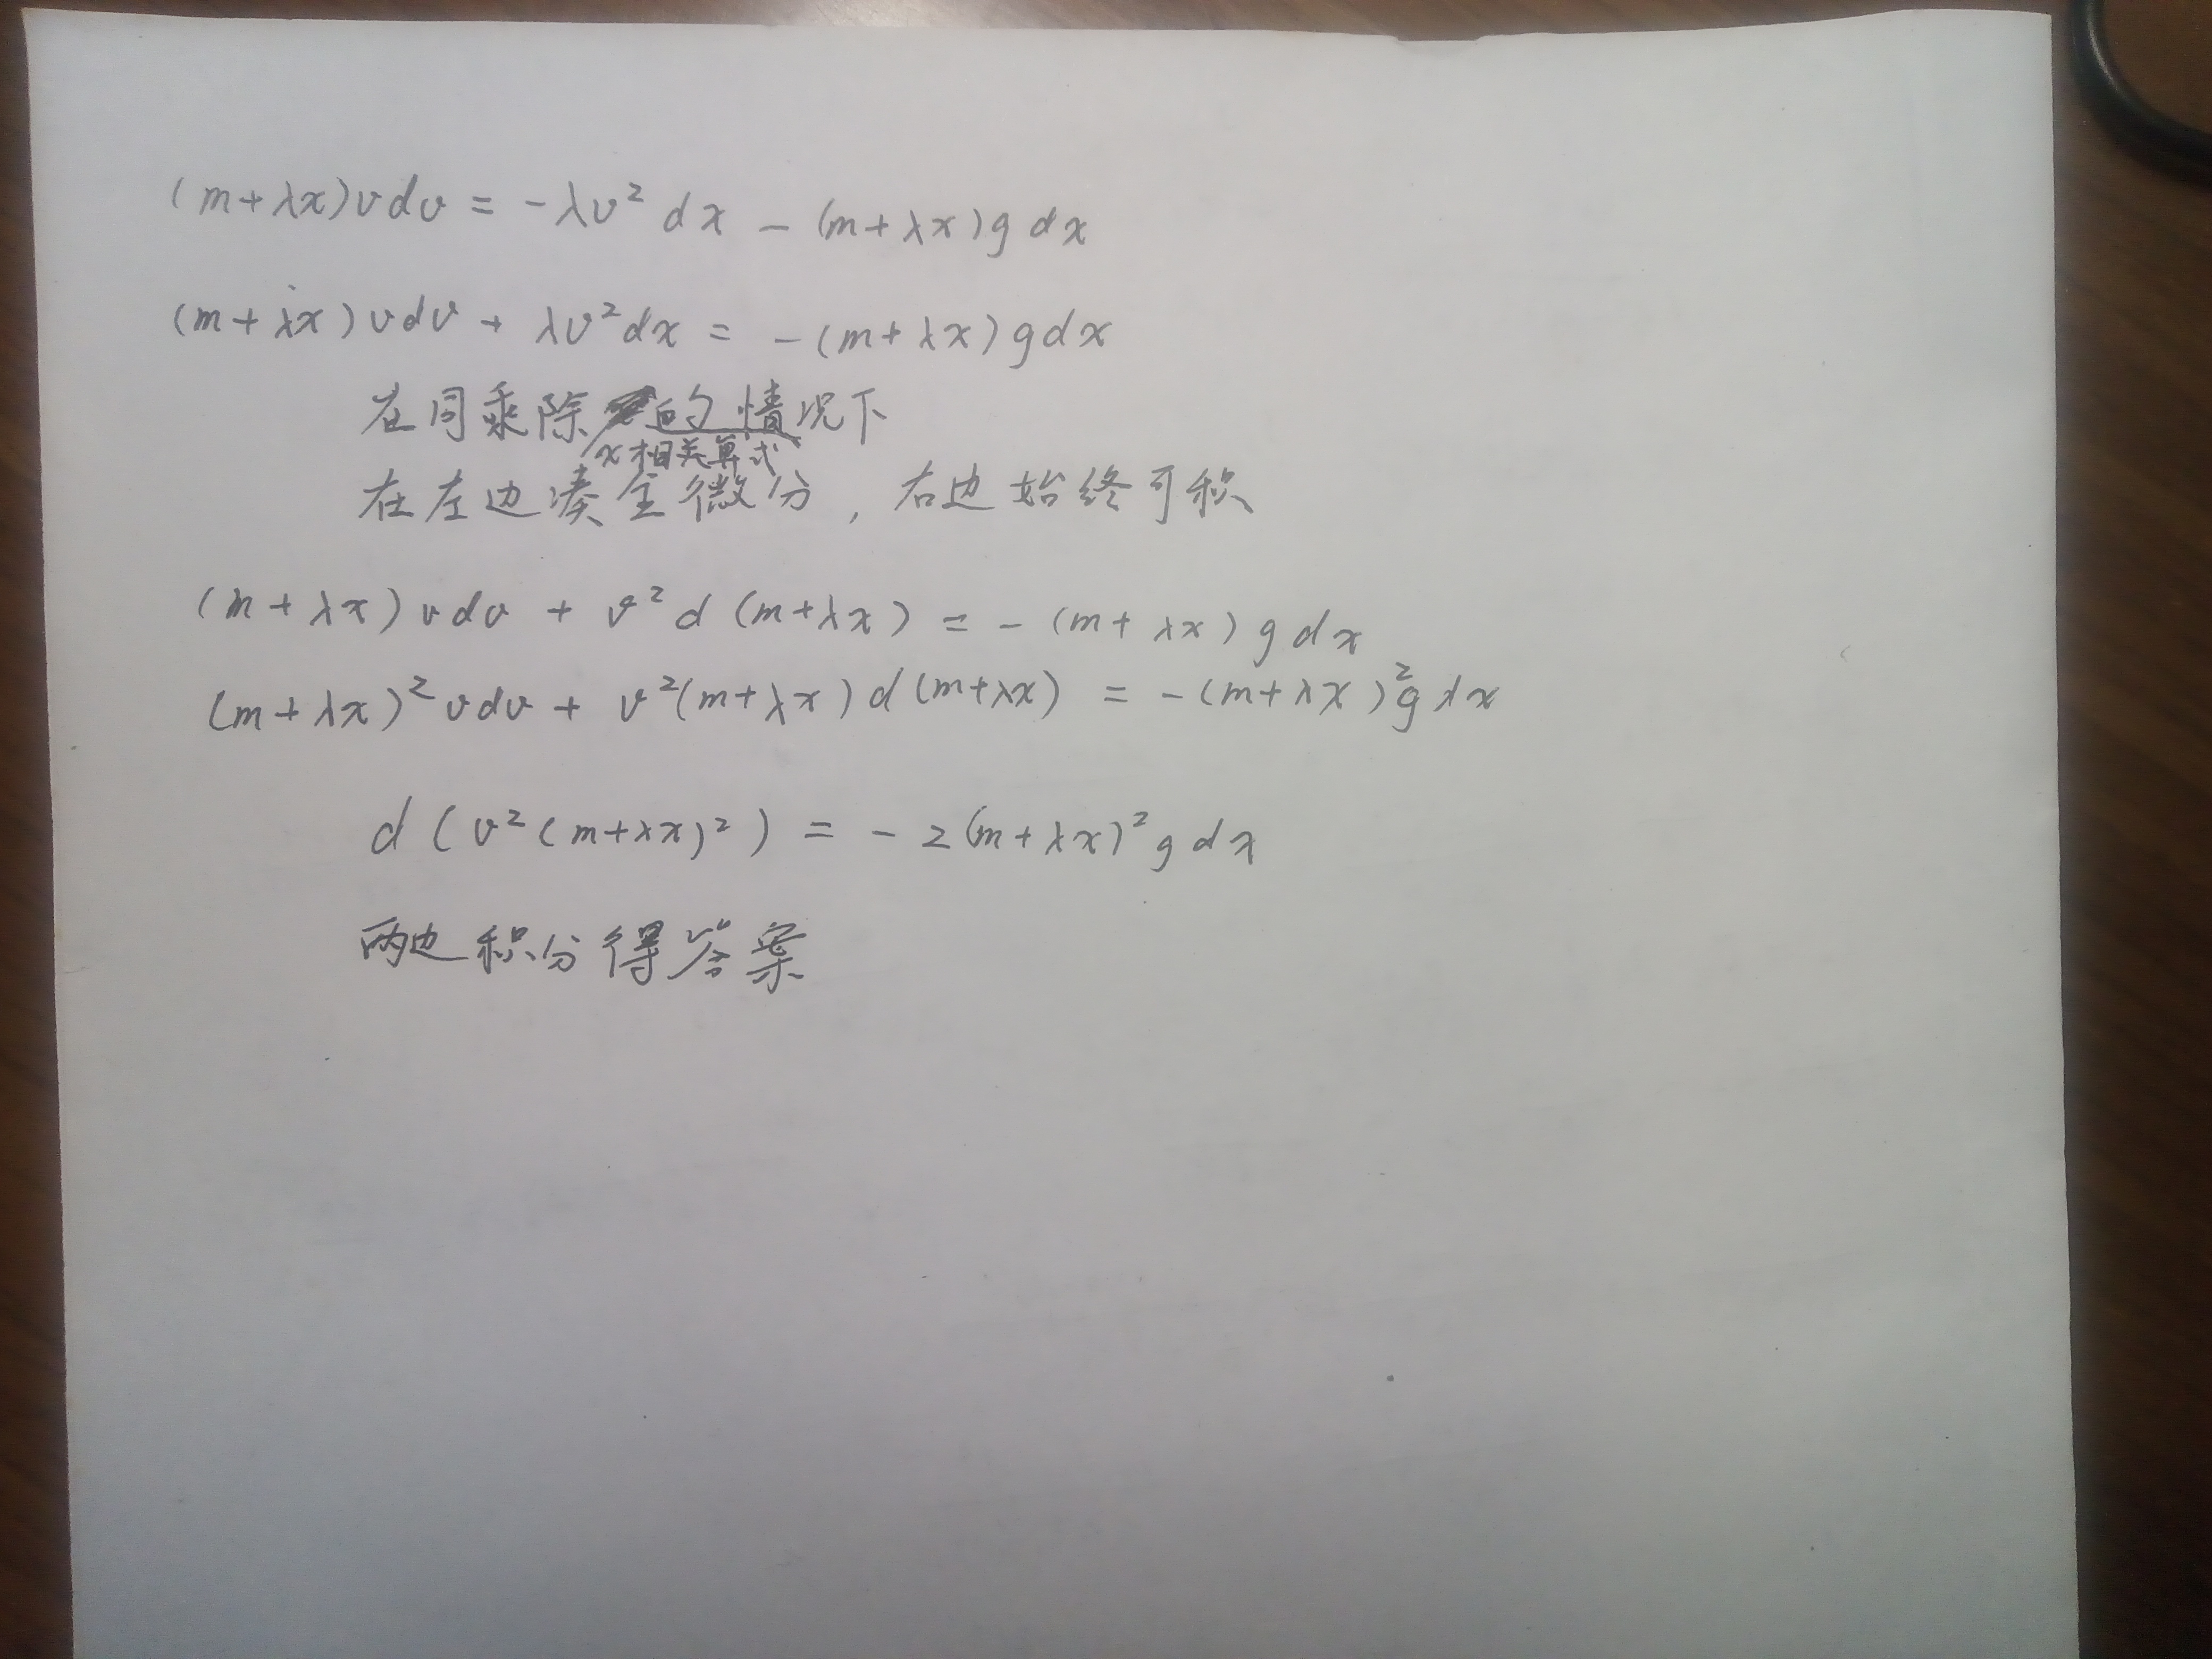 (m+λx)vdv = -λv² dx - (m+λx)g dx
(m+λx)vdv + λv²dx = -(m+λx)gdx
在同乘除的情况下
x相关算式
在左边凑全微分，右边始终可积
(m+λx)vdv + v²d(m+λx) = -(m+λx)gdx
(m+λx)²vdv + v²(m+λx)d(m+λx) = -(m+λx)²gdx
d(v²(m+λx)²) = -2(m+λx)²gdx
两边积分得答案